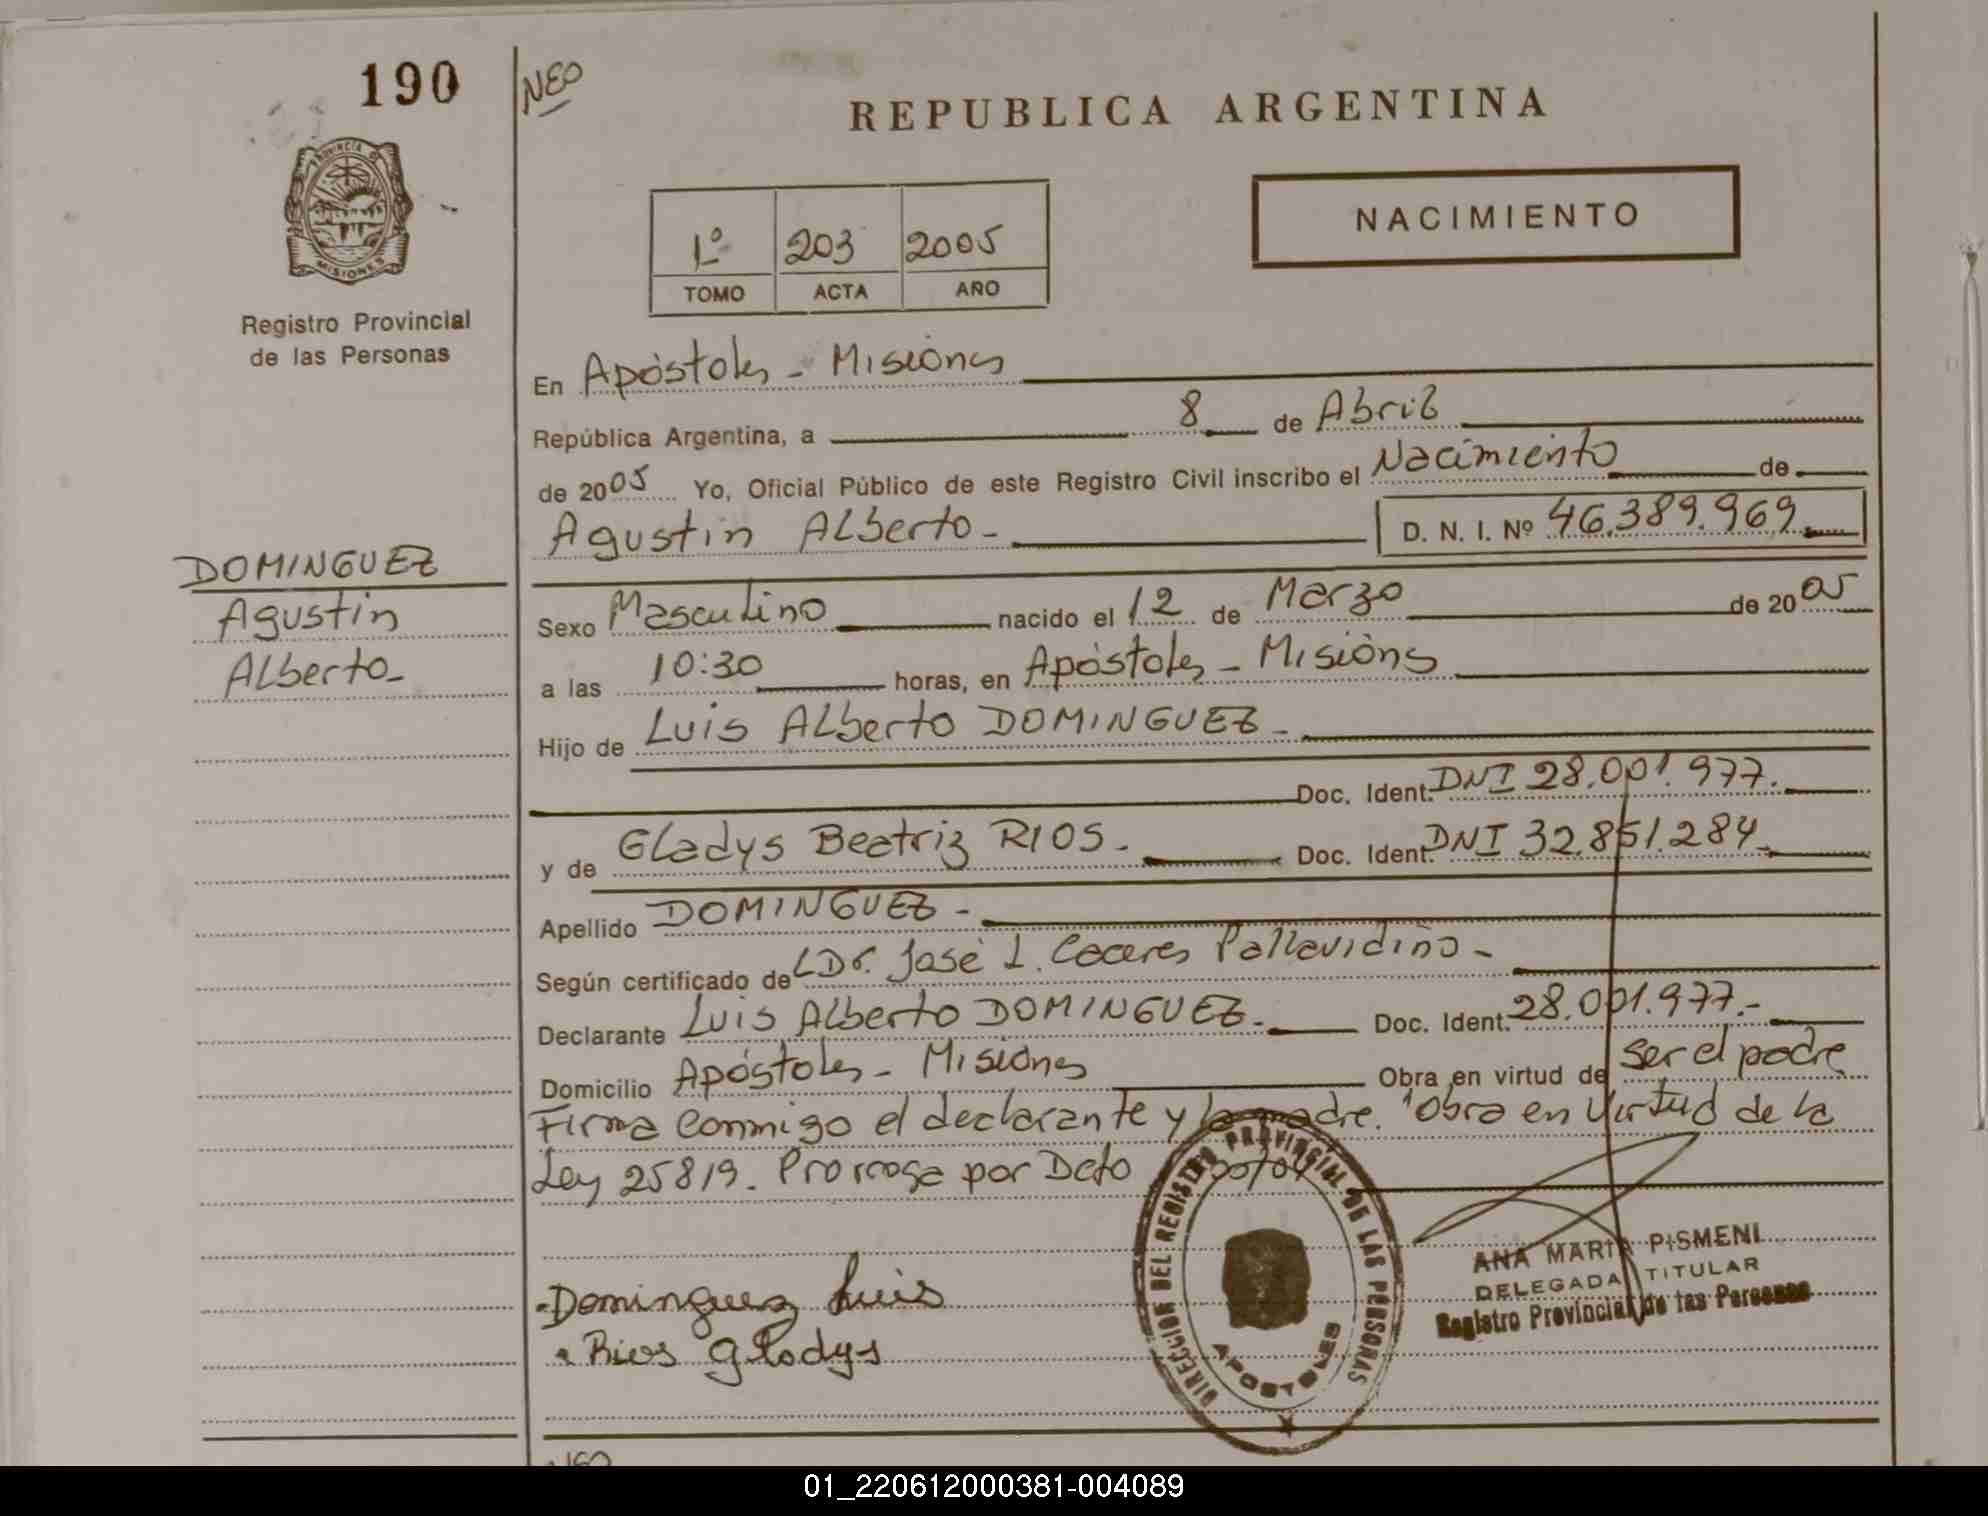 190
NEO
REPUBLICA ARGENTINA
PROVINCIA DE
MISIONES
Registro Provincial
de las Personas
1º 203 2005
TOMO ACTA AÑO
NACIMIENTO
En Apóstoles - Misiones
República Argentina, a 8 de Abril
de 2005 Yo, Oficial Público de este Registro Civil inscribo el Nacimiento de
Agustin Alberto - D. N. I. Nº 46.389.969
DOMINGUEZ
Agustin
Alberto -
Sexo Masculino nacido el 12 de Marzo de 2005
a las 10:30 horas, en Apóstoles - Misiones
Hijo de Luis Alberto DOMINGUEZ -
Doc. Ident. DNI 28.001.977.
y de Gladys Beatriz RIOS - Doc. Ident. DNI 32.851.284
Apellido DOMINGUEZ -
Según certificado de Dr. José L. Caceres Pallavidino -
Declarante Luis Alberto DOMINGUEZ - Doc. Ident. 28.001.977.-
Domicilio Apóstoles - Misiones Obra en virtud de ser el padre
Firma conmigo el declarante y la madre. Obra en virtud de la
Ley 25819. Prorroga por Dcto
Dominguez Luis
Rios Gladys
DIRECCION DEL REGISTRO PROVINCIAL DE LAS PERSONAS
APOSTOLES
ANA MARIA PISMENI
DELEGADA TITULAR
Registro Provincial de las Personas
01_220612000381-004089